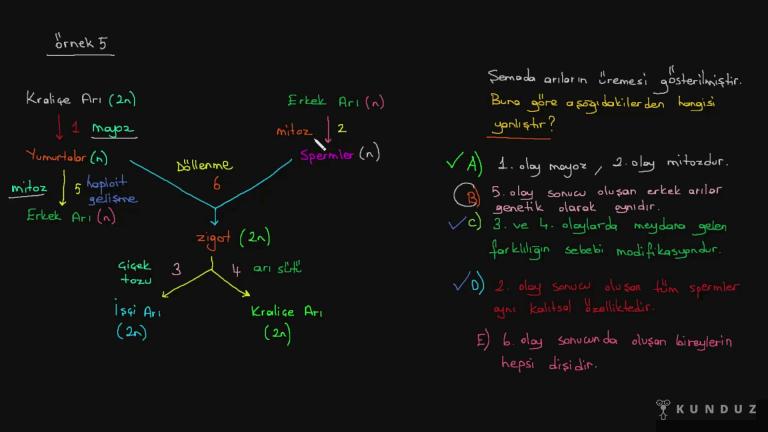 örnek 5
Kraliçe Arı (2n)
1 mayoz
Yumurtalar (n)
mitoz 5 haploit gelişme
Erkek Arı (n)
Erkek Arı (n)
mitoz 2
Spermler (n)
Döllenme
6
zigot (2n)
çiçek tozu 3
4 arı sütü
İşçi Arı
(2n)
Kraliçe Arı
(2n)
Şemada arıların üremesi gösterilmiştir.
Buna göre aşağıdakilerden hangisi
yanlıştır?
A) 1. olay mayoz, 2. olay mitozdur.
B) 5. olay sonucu oluşan erkek arılar
genetik olarak aynıdır.
C) 3. ve 4. olaylarda meydana gelen
farklılığın sebebi modifikasyondur.
D) 2. olay sonucu oluşan tüm spermler
aynı kalıtsal özelliktedir.
E) 6. olay sonucunda oluşan bireylerin
hepsi dişidir.
KUNDUZ